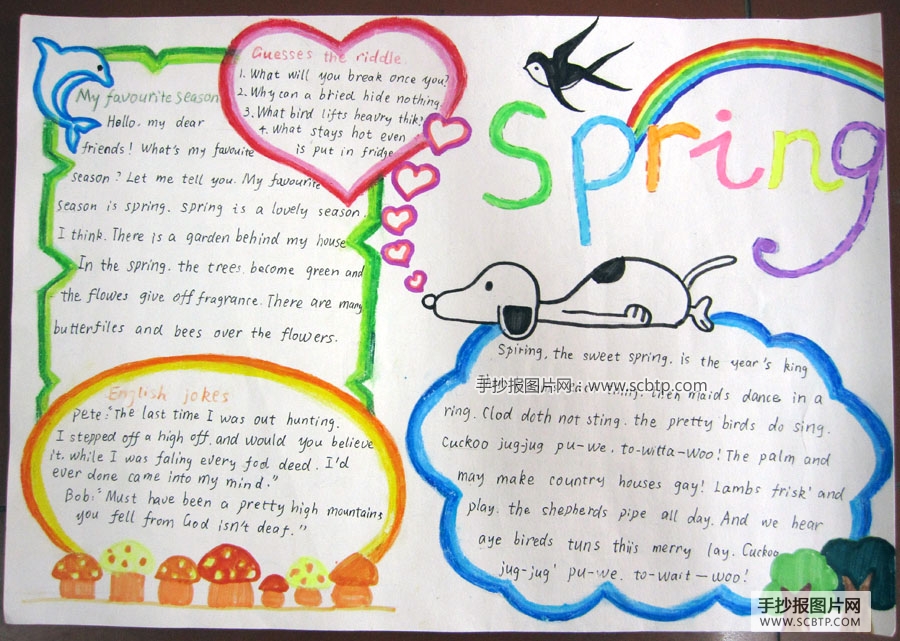 My favourite season
Hello, my dear
friends! What's my favouite
season? Let me tell you. My favourite
season is spring. spring is a lovely season
I think. There is a garden behind my house
In the spring. the trees. become green and
the flowes give off fragrance. There are many
butterfiles and bees over the flowers.
Guesses the riddle
1. What will you break once you?
2. Why can a bried hide nothing
3. What bird lifts heavry
4. What stays hot even
is put in fridge
Spring
English jokes
Pete: "The last time I was out hunting.
I stepped off a high off. and would you believe
it. while I was faling every fod deed. I'd
ever done came into my mind."
Bob: "Must have been a pretty high mountains
you fell from God isn't deaf."
Spiring, the sweet spring. is the year's king
手抄报图片网: www.scbtp.com
thing. then maids dance in a
ring. Clod doth not sting. the pretty birds do sing.
Cuckoo jug-jug pu-we. to-witta-woo! The palm and
may make country houses gay! Lambs frisk' and
play. the shepherds pipe all day. And we hear
aye bireds tuns this merry lay. Cuckoo
jug-jug' pu-we. to-wait-woo!
手抄报图片网
WWW.SCBTP.COM